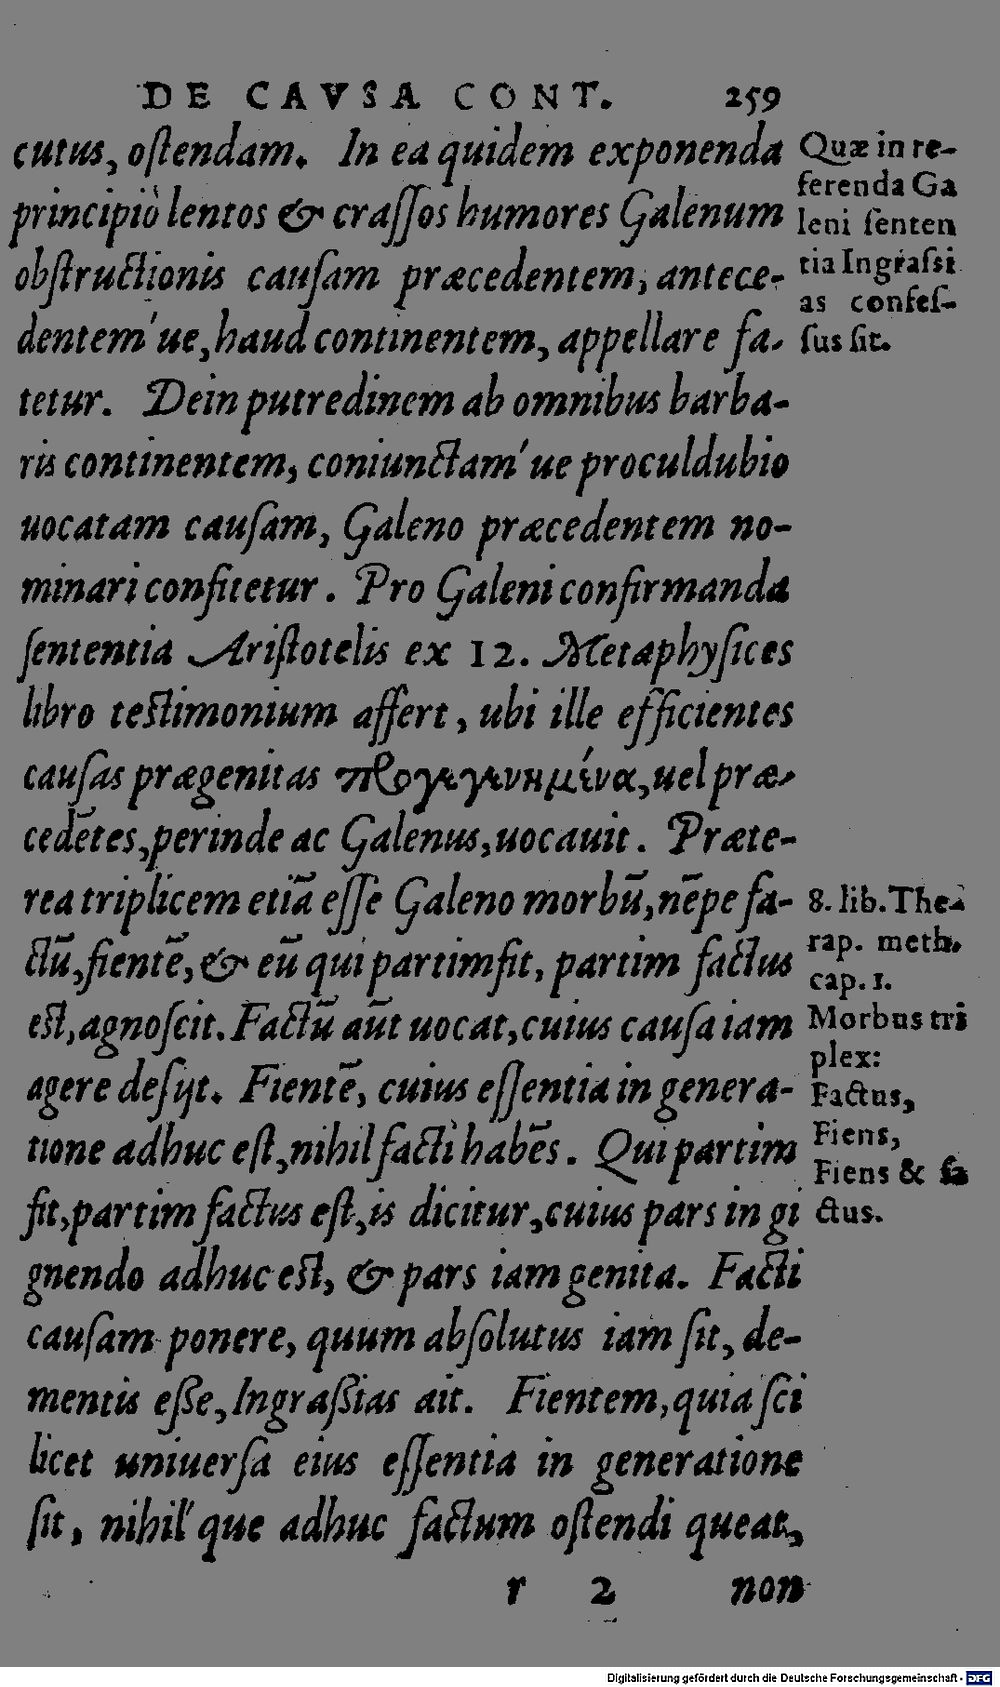 DE CAVSA CONT. 259
cutus, ostendam. In ea quidem exponenda
principiò lentos & crassos humores Galenum
obstructionis causam præcedentem, antece-
dentem'ue, haud continentem, appellare fa-
tetur. Dein putredinem ab omnibus barba-
ris continentem, coniunctam'ue proculdubio
uocatam causam, Galeno præcedentem no-
minari confitetur. Pro Galeni confirmanda
sententia Aristotelis ex 12. Metaphysices
libro testimonium affert, ubi ille efficientes
causas prægenitas προγεγενημένα, uel præ-
cedẽtes, perinde ac Galenus, uocauit. Præte-
rea triplicem etiã esse Galeno morbũ, nẽpe fa-
ctũ, fientẽ, & eũ qui partim fit, partim factus
est, agnoscit. Factũ aũt uocat, cuius causa iam
agere desijt. Fientẽ, cuius essentia in genera-
tione adhuc est, nihil facti habẽs. Qui partim
fit, partim factus est, is dicitur, cuius pars in gi
gnendo adhuc est, & pars iam genita. Facti
causam ponere, quum absolutus iam sit, de-
mentis esse, Ingrassias ait. Fientem, quia sci
licet uniuersa eius essentia in generatione
sit, nihil'que adhuc factum ostendi queat,
r 2 non
Quæ in re-
ferenda Ga
leni senten
tia Ingrassi
as confes-
sus sit.
8. lib. The-
rap. meth.
cap. 1.
Morbus tri
plex:
Factus,
Fiens,
Fiens & fa
ctus.
Digitalisierung gefördert durch die Deutsche Forschungsgemeinschaft - DFG